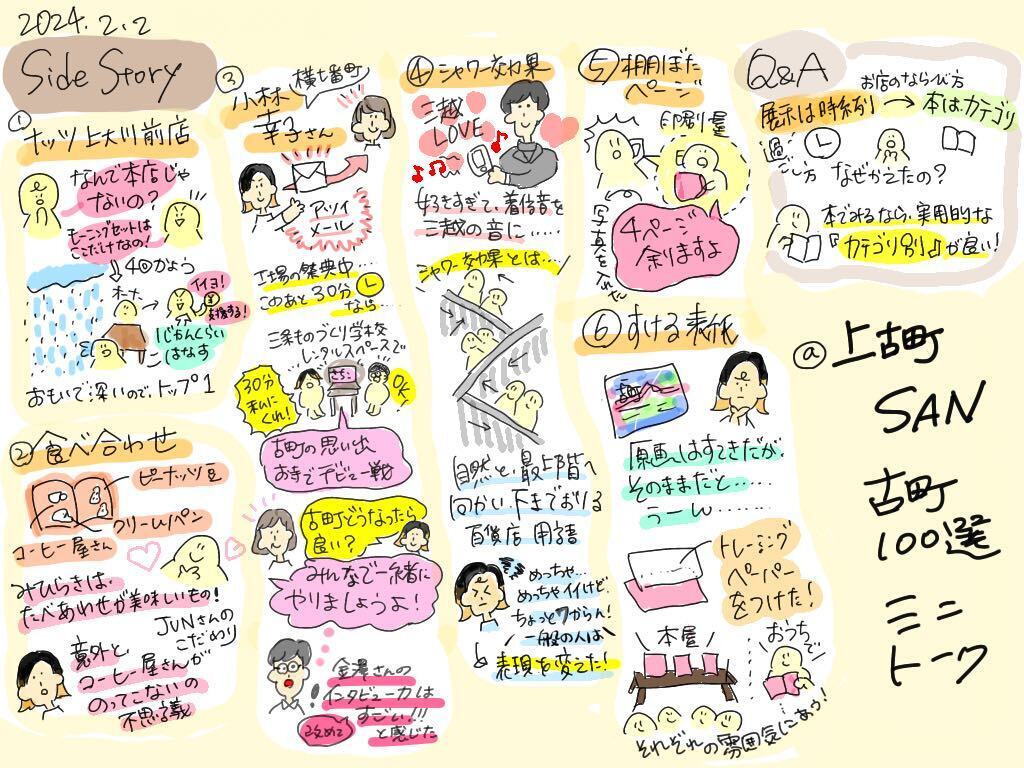 2024.2.2
Side Story
①
ナッツ上大川前店
なんで本店じゃ
ないの?
モーニングセットは
ここだけなの!
4回かよう
オーナー
イイヨ!
支援する!
1じかんくらい
はなす
おもいで深いので、トップ1
② 食べ合わせ
ピーナッツ豆
クリームパン
コーヒー屋さん
みひらきは、
たべあわせが美味しいもの!
JUNさんの
こだわり
意外と、
コーヒー屋さんが
のってこないの
不思議
③
横七番町
小林
幸子さん
アツイ
メール
工場の祭典中…
このあと30分
なら…
三条ものづくり学校
レンタルスペースで
30分
私にくれ!
さちこ
OK
古町の思い出
お寺でデビュー戦
古町どうなったら
良い?
みんなで一緒に
やりましょうよ!
金澤さんの
インタビュー力は
すごい!!!
改めて
と感じた
④ シャワー効果
三越
LOVE
好きすぎて、着信音を
三越の音に……
シャワー効果とは…
自然と、最上階へ
向かい、下までおりる
百貨店用語
めっちゃ…
めっちゃイイけど、
ちょっとワカらん!
一般の人は
と表現を変えた!
⑤ 棚ぼた
ページ
印刷屋
4ページ
余りますよ
写真を入れた
⑥ すける表紙
古町へ
原画はすてきだが、
そのままだと……
うーん……
トレーシング
ペーパー
をつけた!
本屋
おうちで
それぞれの雰囲気にあう!
Q&A
お店のならび方
展示は時系列→本はカテゴリ
過ごし方
なぜかえたの?
本でみるなら、実用的な
『カテゴリ別』が良い!
@上古町
SAN
古町
100選
ミニ
トーク